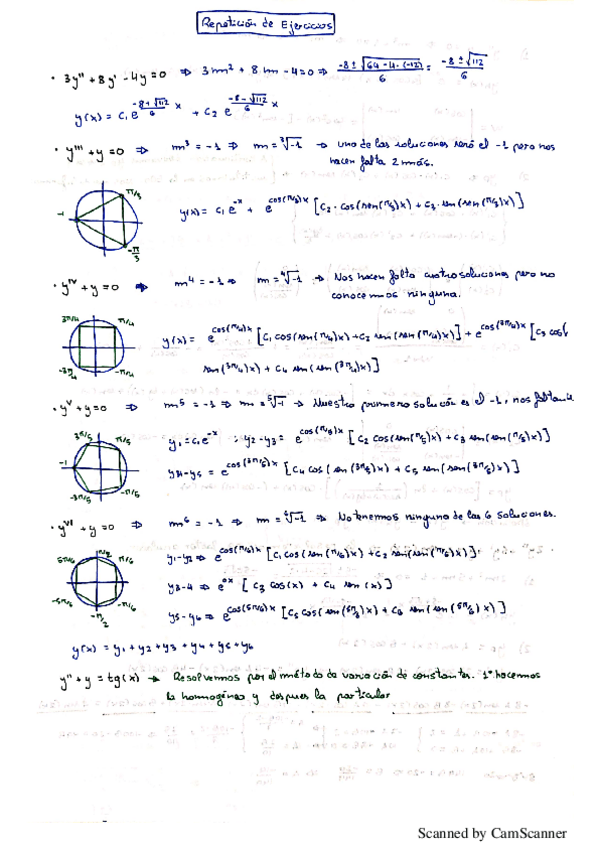 Repetición de Ejercicios
· 3y'' + 8y' - 4y = 0 ⇒ 3m² + 8m - 4 = 0 ⇒ (-8 ± √(64 - 4·(-12)))/6 = (-8 ± √112)/6
y(x) = c₁ e^((-8+√112)/6 x) + c₂ e^((-8-√112)/6 x)
· y''' + y = 0 ⇒ m³ = -1 ⇒ m = ³√-1 → una de las soluciones será el -1 pero nos
hacen falta 2 más.
π/3
-1
-π/3
y(x) = c₁ e^(-x) + e^(cos(π/3)x) [c₂ · cos(sen(π/3)x) + c₃ · sen(sen(π/3)x)]
· y^IV + y = 0 ⇒ m⁴ = -1 ⇒ m = ⁴√-1 ⇒ Nos hacen falta cuatro soluciones pero no
conocemos ninguna.
3π/4 π/4
-3π/4 -π/4
y(x) = e^(cos(π/4)x) [c₁ cos(sen(π/4)x) + c₂ sen(sen(π/4)x)] + e^(cos(3π/4)x) [c₃ cos(
sen(3π/4)x) + c₄ sen(3π/4)x)]
· y^V + y = 0 ⇒ m⁵ = -1 ⇒ m = ⁵√-1 → Nuestra primera solución es el -1, nos faltan 4
3π/5 π/5
-1
-3π/5 -π/5
y₁ = c₁ e^(-x) ; y₂-y₃ = e^(cos(π/5)x) [c₂ cos(sen(π/5)x) + c₃ sen(sen(π/5)x)]
y₄-y₅ = e^(cos(3π/5)x) [c₄ cos(sen(3π/5)x) + c₅ sen(sen(3π/5)x)]
· y^VI + y = 0 ⇒ m⁶ = -1 ⇒ m = ⁶√-1 ⇒ No tenemos ninguno de las 6 soluciones.
5π/6 π/2 π/6
-5π/6 -π/2 -π/6
y₁-y₂ ⇒ e^(cos(π/6)x) [c₁ cos(sen(π/6)x) + c₂ sen(sen(π/6)x)]
y₃-₄ ⇒ e^(0x) [c₃ cos(x) + c₄ sen(x)]
y₅-y₆ ⇒ e^(cos(5π/6)x) [c₅ cos(sen(5π/6)x) + c₆ sen(sen(5π/6)x)]
y(x) = y₁ + y₂ + y₃ + y₄ + y₅ + y₆
y'' + y = tg(x) → Resolvemos por el método de variación de constantes. 1º hacemos
la homogénea y despues la particular
Scanned by CamScanner